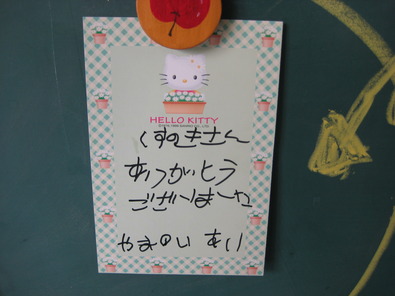 HELLO KITTY
くすのきさん
ありがとう
ございました
やまのい あい